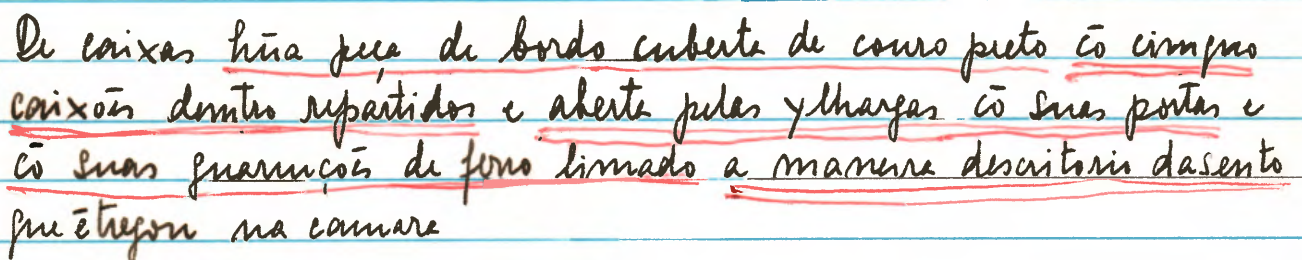 De caixas hũa peça de bordo cuberta de couro preto cõ cimquo
caixões demtro repartidos e aberta pelas ylhargas cõ suas portas e
cõ suas guarnuções de ferro limado a maneira descritorio dasento
que ẽtregou na camara